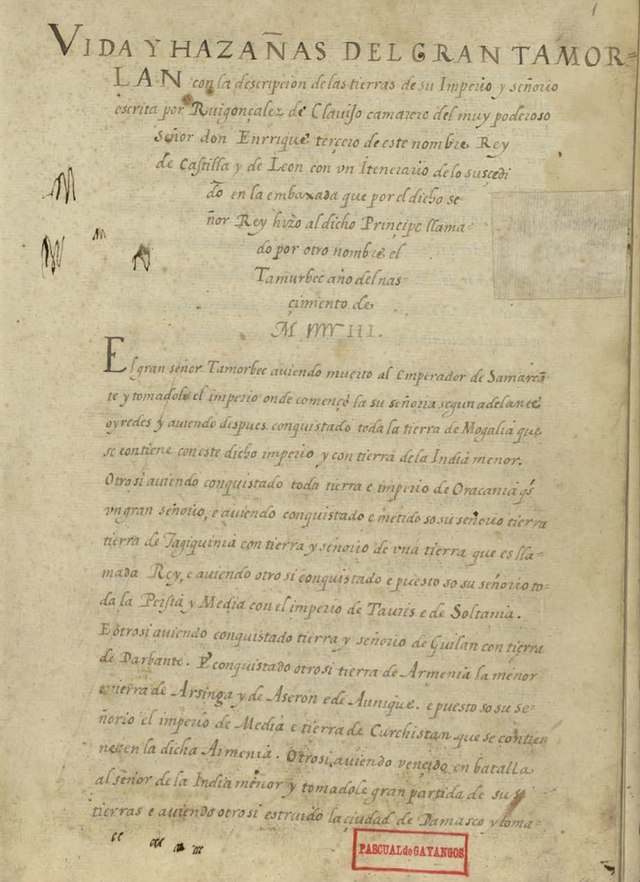 1
VIDA Y HAZAÑAS DEL GRAN TAMOR-
LAN con la descripcion de las tierras de su Imperio y señorio
escrita por Ruigonçalez de Clauijo camarero del muy poderoso
Señor don Enrrique tercero de este nombre Rey
de Castilla y de Leon con vn Itenerario de lo suscedi
do en la embaxada que por el dicho se-
ñor Rey hizo al dicho Principe llama-
do por otro nombre el
Tamurbec año del nas-
çimiento de
M IIII III.
El gran señor Tamorbec auiendo muerto al Emperador de Samarcã
te y tomadole el imperio onde començo la su señoria segun adelante
oyredes y auiendo despues conquistado toda la tierra de Mogalia que
se contiene con este dicho imperio y con tierra de la India menor.
Otrosi auiendo conquistado toda tierra e imperio de Oracania
vn gran señorio, e auiendo conquistado e metido so su señorio tierra
tierra de Tagiquinia con tierra y señorio de vna tierra que es lla-
mada Rey, e auiendo otrosi conquistado e puesto so su señorio to-
da la Persia y Media con el imperio de Tauris e de Soltania.
E otrosi auiendo conquistado tierra y señorio de Guilan con tierra
de Darbante. E conquistado otrosi tierra de Armenia la menor
e tierra de Arsinga y de Aseron e de Aunique. e puesto so su se-
ñorio el imperio de Media e tierra de Curchistan que se contien
nen en la dicha Armenia. Otrosi auiendo vencido en batalla
al señor de la India menor y tomadole gran partida de sus
tierras e auiendo otrosi estruido la çiudad de Damasco y toma-
PASCUAL de GAYANGOS